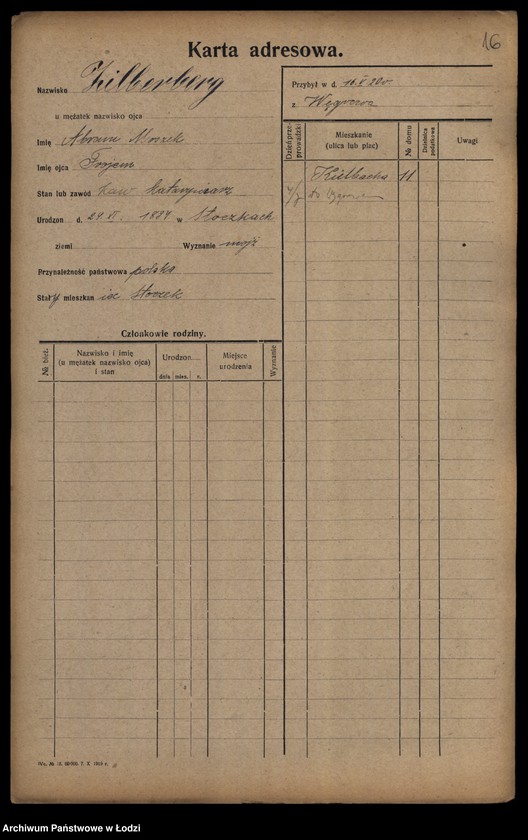 16
Karta adresowa.
Nazwisko Zilberberg
u mężatek nazwisko ojca
Imię Abram Moszek
Imię ojca
Stan lub zawód kaw
Urodzon d. 24 VI. 1884 w Stoczkach
ziemi Wyznanie mojż
Przynależność państwowa polska
Stały mieszkan iec Stoczek
Przybył w d. 16. V
z Węgrowa
Dzień przeprowadzki
Mieszkanie
(ulica lub plac)
№ domu
Dzielnica podatkowa
Uwagi
Kielbacha 11
do
Członkowie rodziny.
№ bież.
Nazwisko i imię
(u mężatek nazwisko ojca)
i stan
Urodzon....
dnia mies. r.
Miejsce
urodzenia
Wyznanie
Archiwum Państwowe w Łodzi